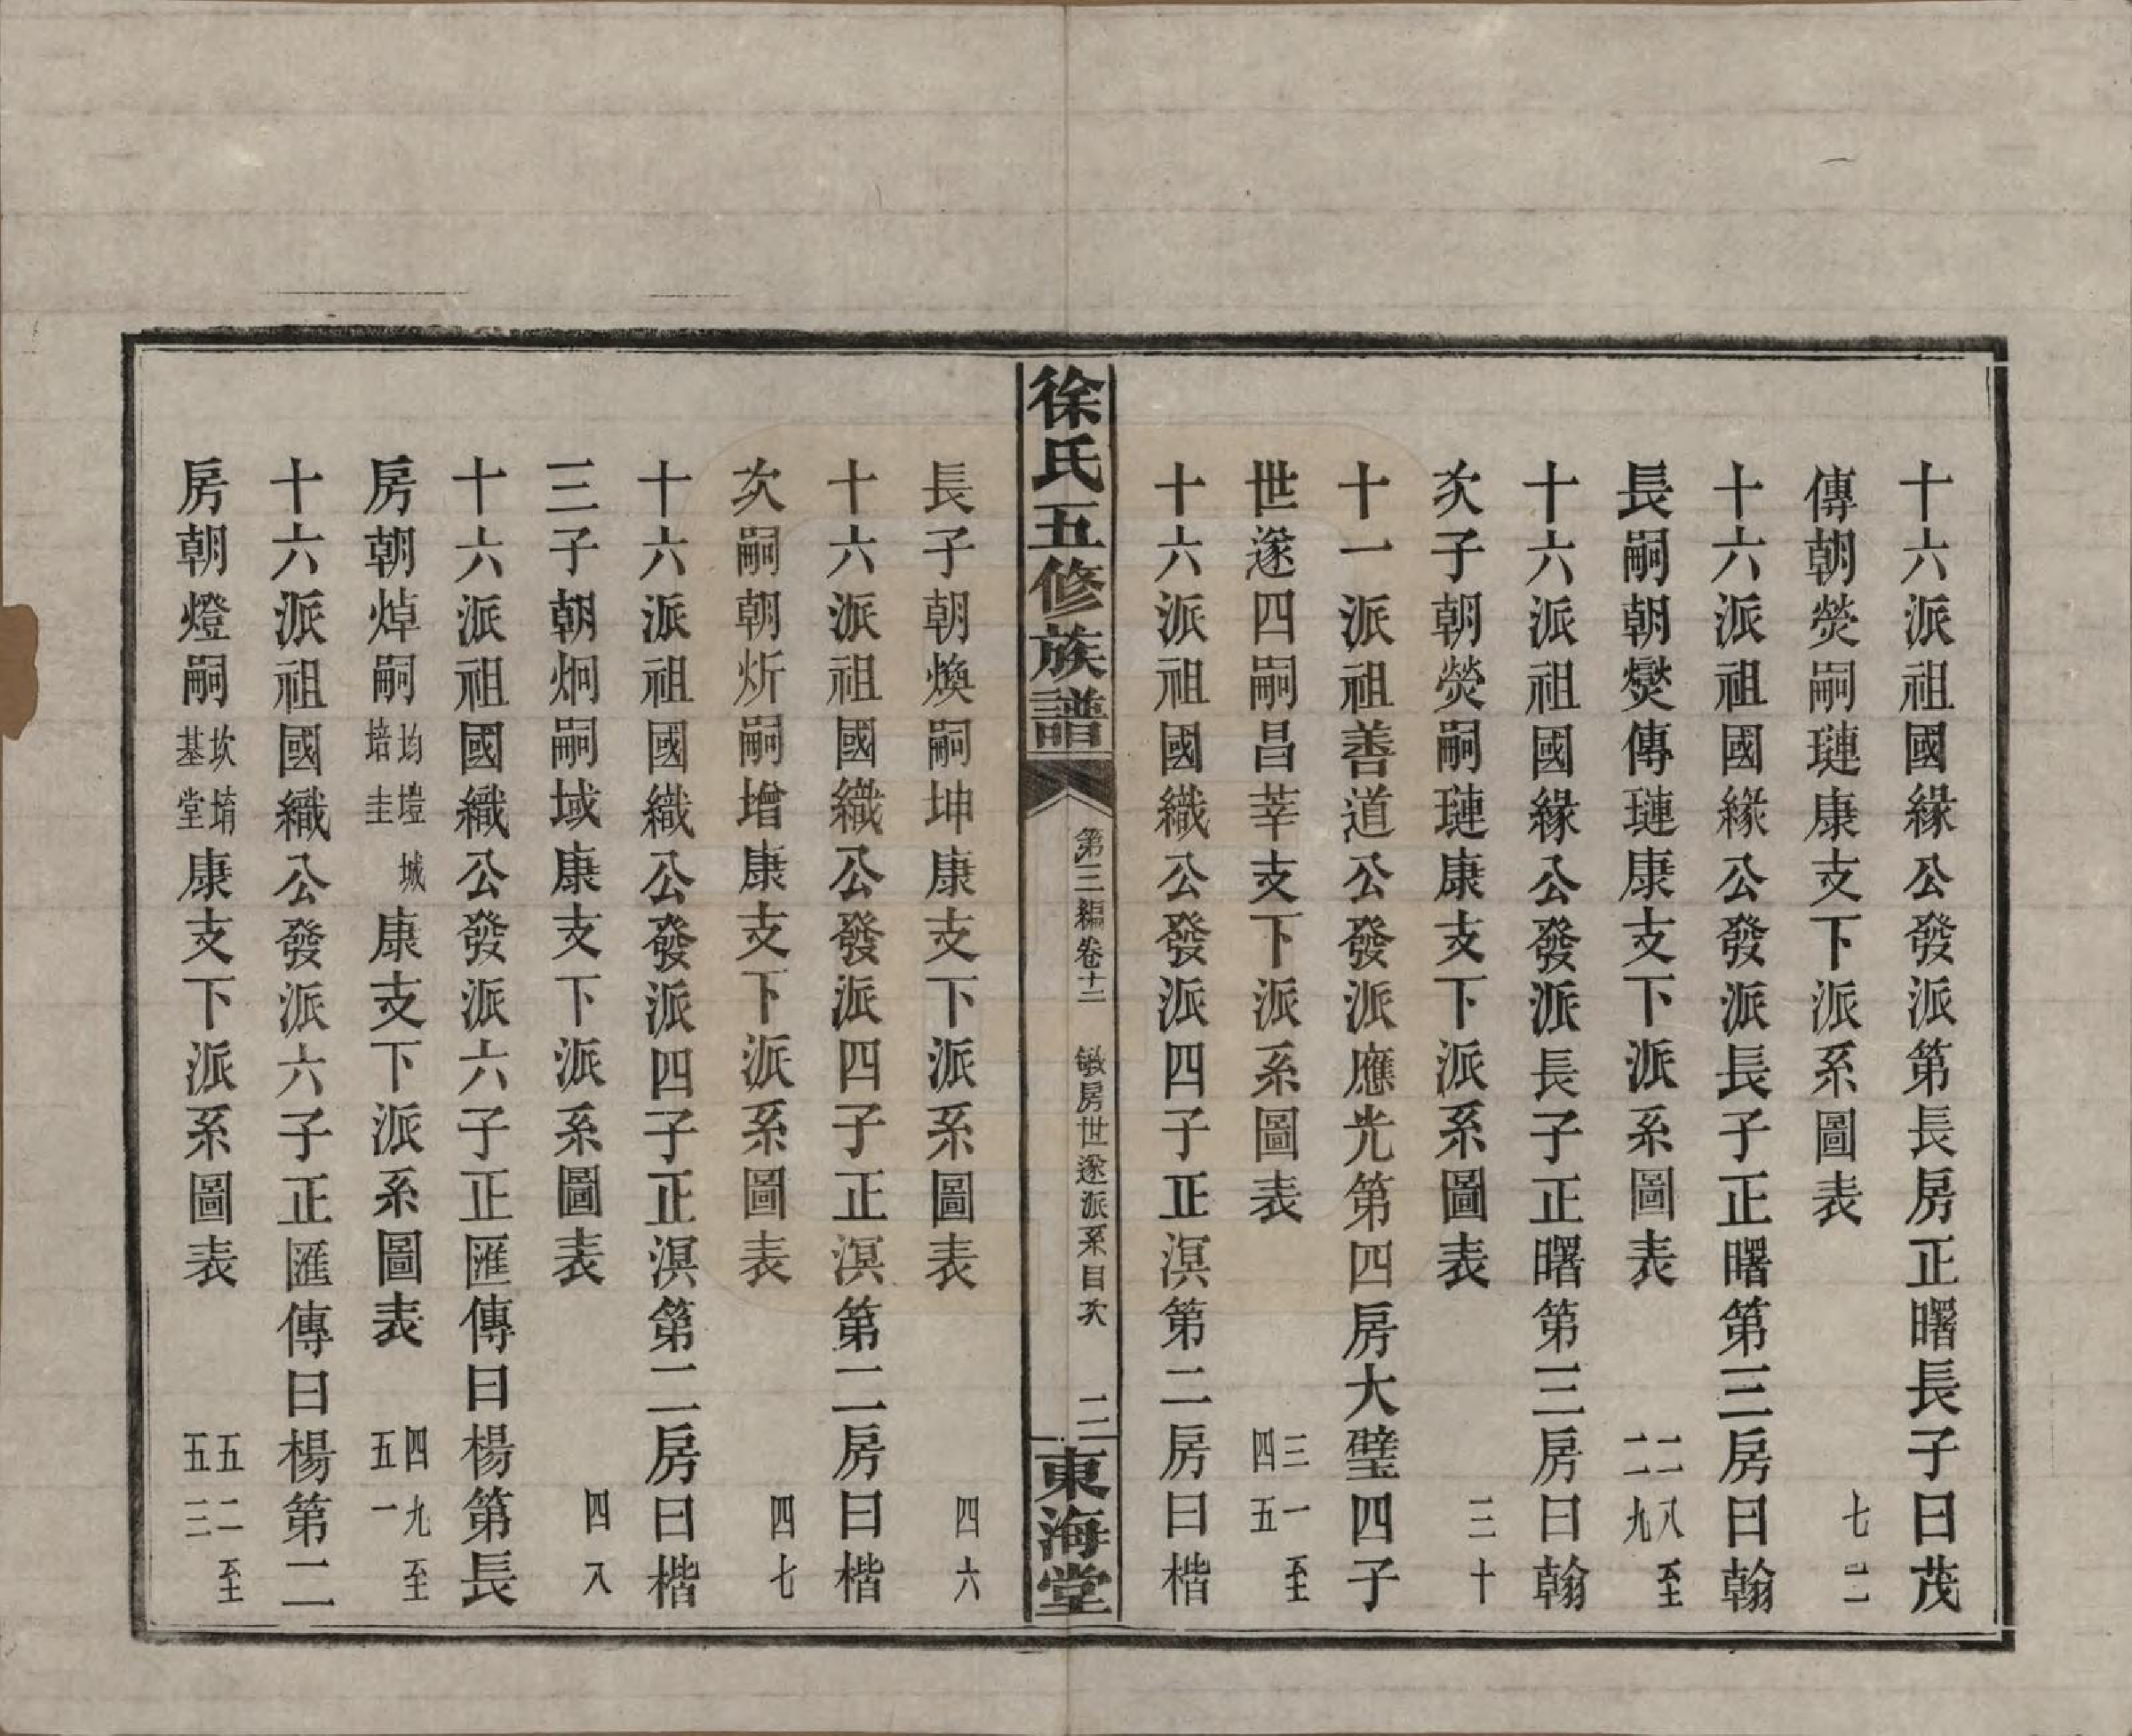 十六派祖國緣公發派第長房正曙長子曰茂
傳朝熒嗣璉康支下派系圖表 二七
十六派祖國緣公發派長子正曙第三房曰翰
長嗣朝爕傳璉康支下派系圖表 二八至二九
十六派祖國緣公發派長子正曙第三房曰翰
次子朝熒嗣璉康支下派系圖表 三十
十一派祖善道公發派應光第四房大璧四子
世遂四嗣昌莘支下派系圖表 三一至四五
十六派祖國織公發派四子正溟第二房曰楷
徐氏五修族譜 第三編卷十二 敏房世遂派系目次 二 東海堂
長子朝煥嗣坤康支下派系圖表 四六
十六派祖國織公發派四子正溟第二房曰楷
次嗣朝炘嗣增康支下派系圖表 四七
十六派祖國織公發派四子正溟第二房曰楷
三子朝炯嗣域康支下派系圖表 四八
十六派祖國織公發派六子正匯傳曰楊第長
房朝焯嗣均塏城培圭康支下派系圖表 四九至五一
十六派祖國織公發派六子正匯傳曰楊第二
房朝燈嗣坎堉基堂康支下派系圖表 五二至五三